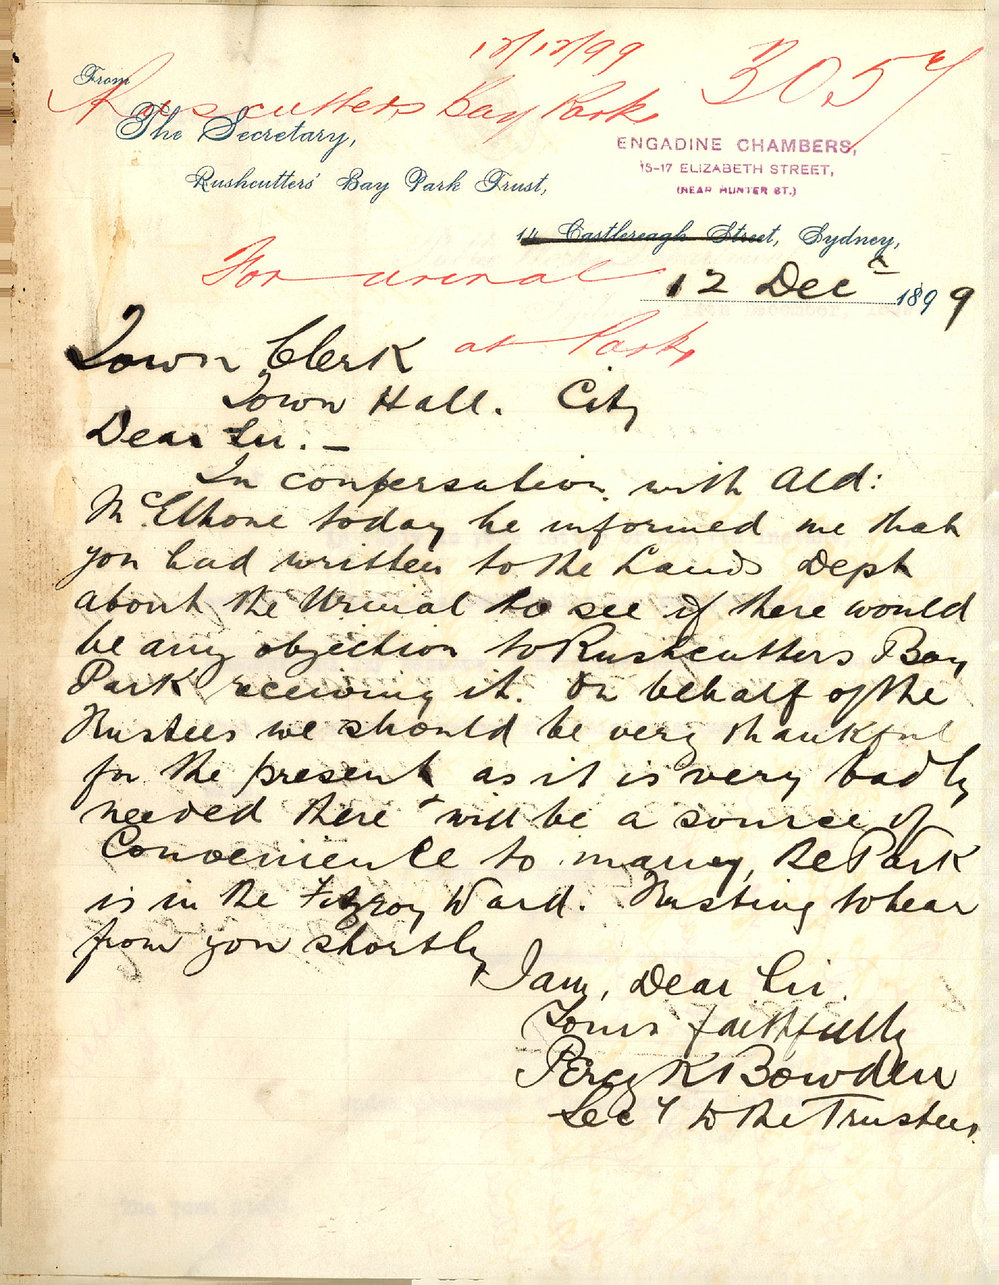 12/12/99
3057
Ruscutters Bay Park
From
The Secretary,
Rushcutters' Bay Park Trust,
ENGADINE CHAMBERS,
15-17 ELIZABETH STREET,
(NEAR HUNTER ST.)
14 Castlereagh Street, Sydney,
For urinal
at Park
12 Decr 1899
Town Clerk
Town Hall. City
Dear Sir. —
In conversation with Ald:
McElhone today he informed me that
you had written to the Lands Dept
about the Urinal to see if there would
be any objection to Rushcutters Bay
Park receiving it. On behalf of the
Trustees we should be very thankful
for the present as it is very badly
needed there & will be a source of
Convenience to many, the Park
is in the Fitzroy Ward. Trusting to hear
from you shortly
I am, Dear Sir.
Yours faithfully
Percy K Bowden
Secy to the Trustees.